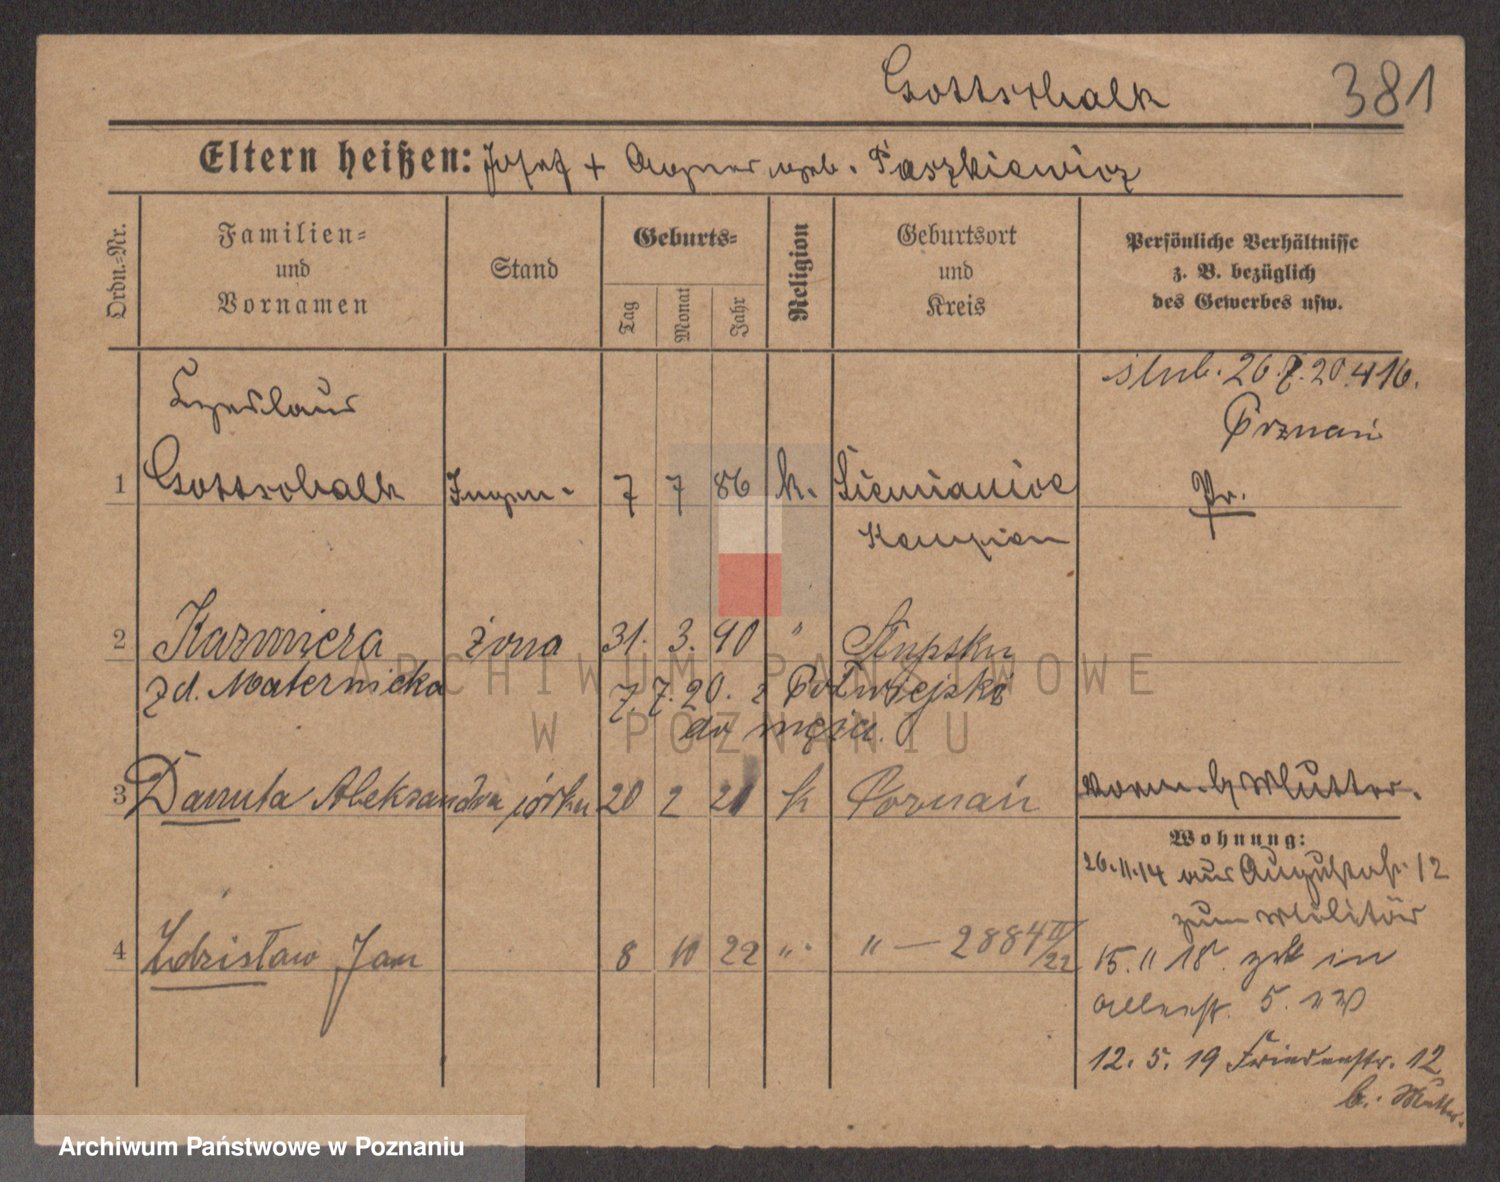 Gottschalk 381
Eltern heißen: Josef + Agnes geb. Paszkiewicz
Ordn.-Nr.
Familien- und Vornamen
Stand
Geburts-
Tag
Monat
Jahr
Religion
Geburtsort und Kreis
Persönliche Verhältnisse z. B. bezüglich des Gewerbes usw.
ślub. 26.7.20.416.
Poznań
Czeslaus
1 Gottschalk Ingen. 7 7 86 k. Siemianice Pr.
Kempen
2 Kazimiera żona 31. 3. 90 " Słupsku
zd. Maternicka 7.7.20. z Półwiejski
do męża.
3 Danuta Aleksandra córka 20 2 21 k Poznań Mutter.
Wohnung:
26.11.14 aus Augustastr. 12
zum Militär
4 Zdzisław Jan 8 10 22 " " — 2884 IV/22
15. 11 18. zck in
5.
12. 5. 19 Friedenstr. 12
b. Mutter.
ARCHIWUM PAŃSTWOWE
W POZNANIU
Archiwum Państwowe w Poznaniu